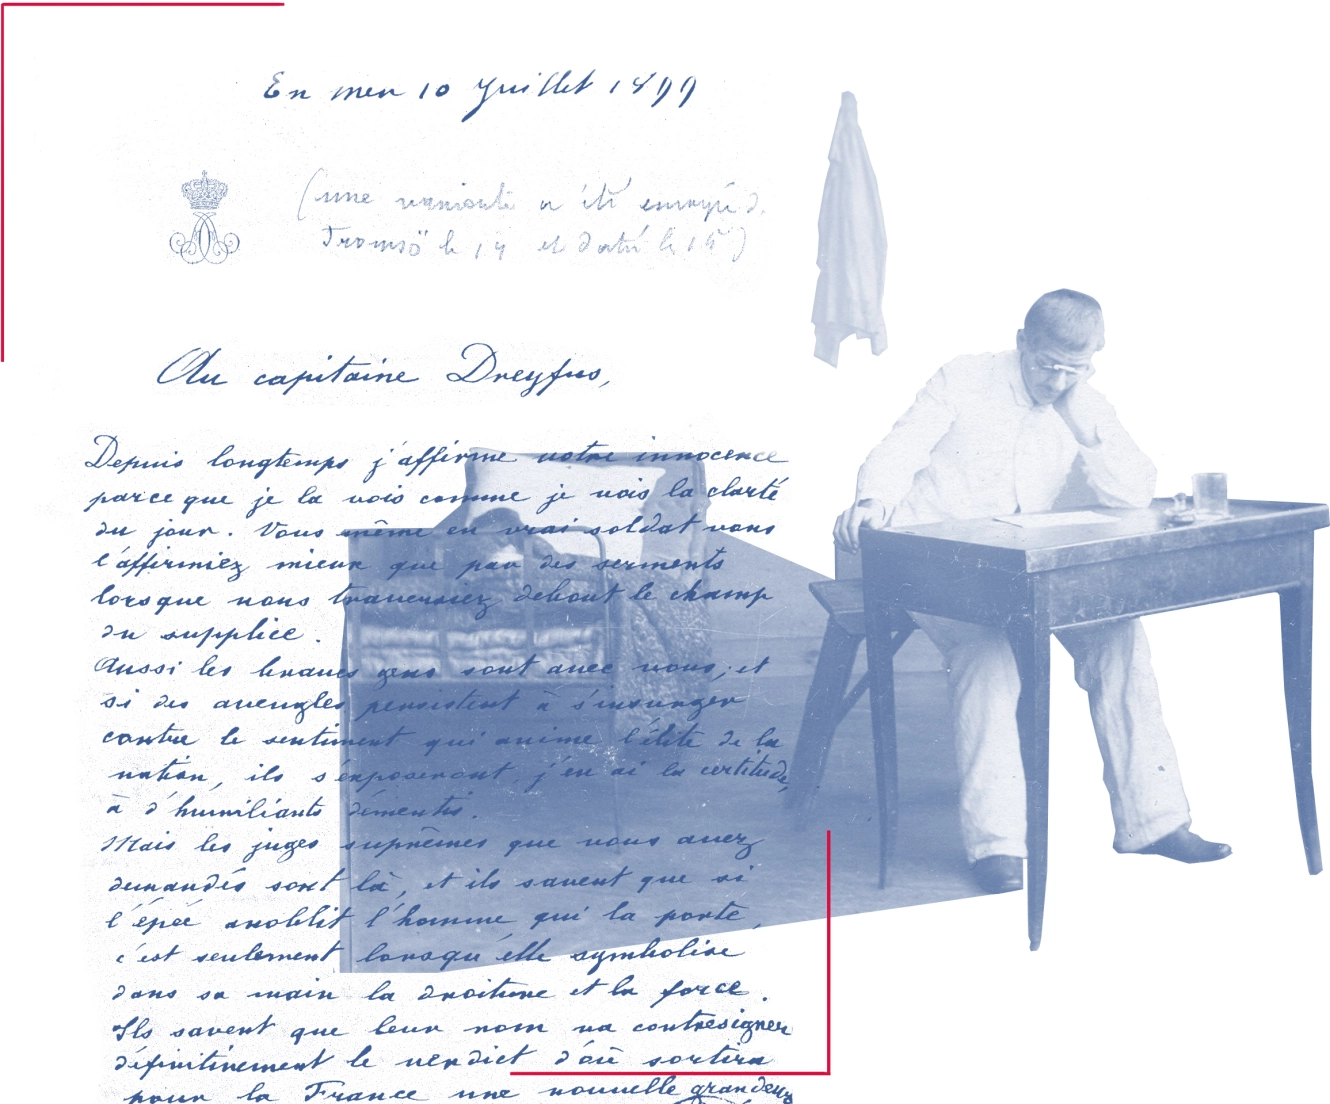 En mer 10 Juillet 1899
(une variante a été envoyé d.
Tromsö le 14 et daté le 15)
Au capitaine Dreyfus,
Depuis longtemps j'affirme votre innocence
parce que je la vois comme je vois la clarté
du jour. Vous même en vrai soldat vous
l'affirmiez mieux que par des serments
lorsque vous traversiez debout le champ
du supplice.
Aussi les braves gens sont avec vous; et
si des aveugles persistent à s'insurger
contre le sentiment qui anime l'élite de la
nation, ils s'exposeront, j'en ai la certitude,
à d'humiliants démentis.
Mais les juges suprêmes que vous avez
demandés sont là, et ils savent que si
l'épée anoblit l'homme qui la porte,
c'est seulement lorsqu'elle symbolise
dans sa main la droiture et la force.
Ils savent que leur nom va contresigner
définitivement le verdict d'où sortira
pour la France une nouvelle grandeur